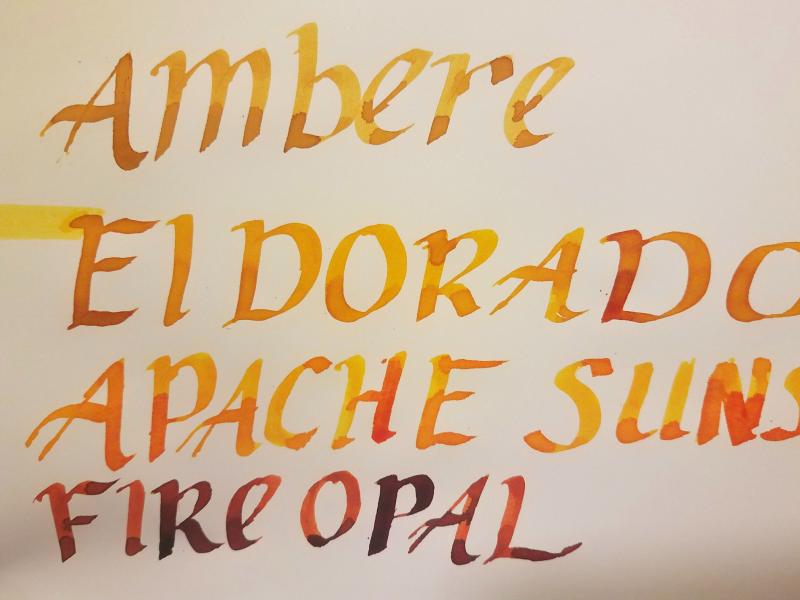 Ambere
El DORADO
APACHE SUNS
FIRe OPAL